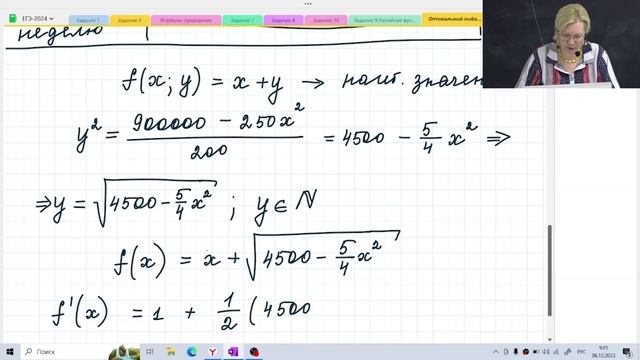 ЕГЭ-2024
Задание 1
Задание 4
Формулы приведения
Задание 7
Задание 8
Задание 10
Задание 9 Линейная фун...
Оптимальный выбо...
неделю
f(x; y) = x + y → наиб. значен
y² = (900000 - 250x²)/200 = 4500 - 5/4 x² ⇒
⇒ y = √(4500 - 5/4 x²) ; y ∈ ℕ
f(x) = x + √(4500 - 5/4 x²)
f'(x) = 1 + 1/2 (4500
Поиск
РУС
9:45
06.12.2023